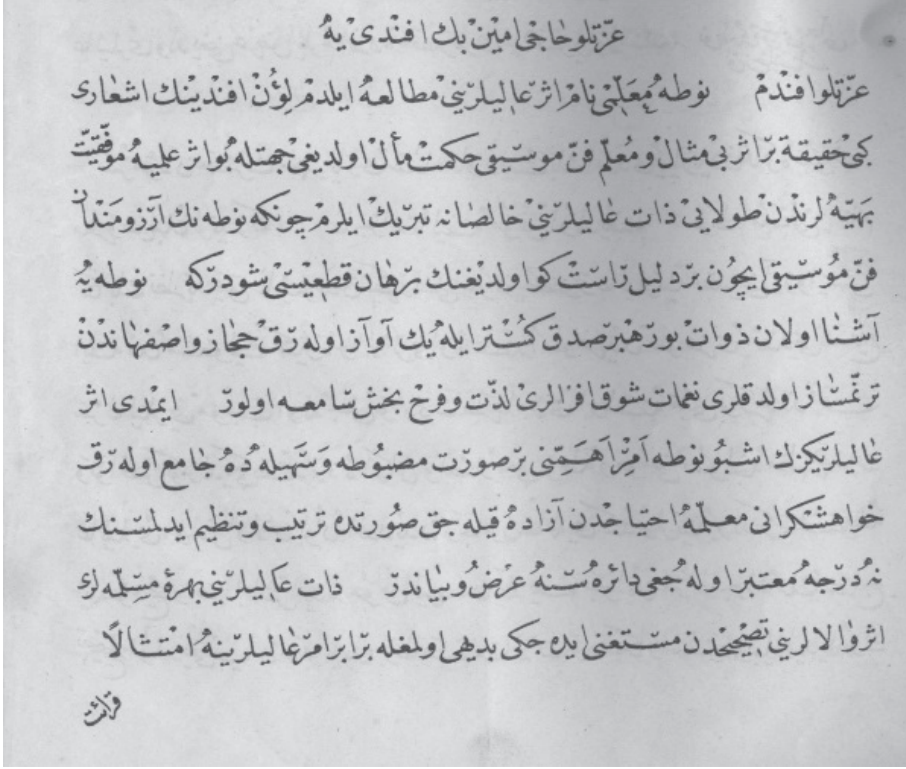 عزّتلو حاجی امین بك افندی یه
عزّتلو افندم نوطه معلّمی نام اثر عالیلرینی مطالعه ایلدم لؤن افندینك اشعاری
كبی حقیقة بر اثر بی مثال و معلّم فنّ موسیقی حكمت مأل اولدیغی جهتله بو اثر علیه موفّقیّت
بهیّه لرندن طولایی ذات عالیلرینی خالصانه تبریك ایلرم چونكه نوطه نك آرزومندان
فنّ موسیقی ایچون بر دلیل راست كو اولدیغنك برهان قطعیسی شودركه نوطه یه
آشنا اولان ذوات بو رهبر صدق كستر ایله یك آواز اوله رق حجاز و اصفهاندن
ترنّمساز اولدقلری نغمات شوق افزالری لذّت و فرح بخش سامعه اولور ایمدی اثر
عالیلریكزك اشبو نوطه امر اهمّنی بر صورت مضبوطه و سهیله ده جامع اوله رق
خواهشكرانی معلّمه احتیاجدن آزاده قیله جق صورتده ترتیب و تنظیم ایدلمسنك
نه درجه معتبر اوله جغی دائره سنه عرض و بیاندر ذات عالیلرینی بهرۀ مسلّمه لری
اثر والالرینی تصحیحدن مستغنی ایده جكی بدیهی اولمغله برابر امر عالیلرینه امتثالاً
قرائت